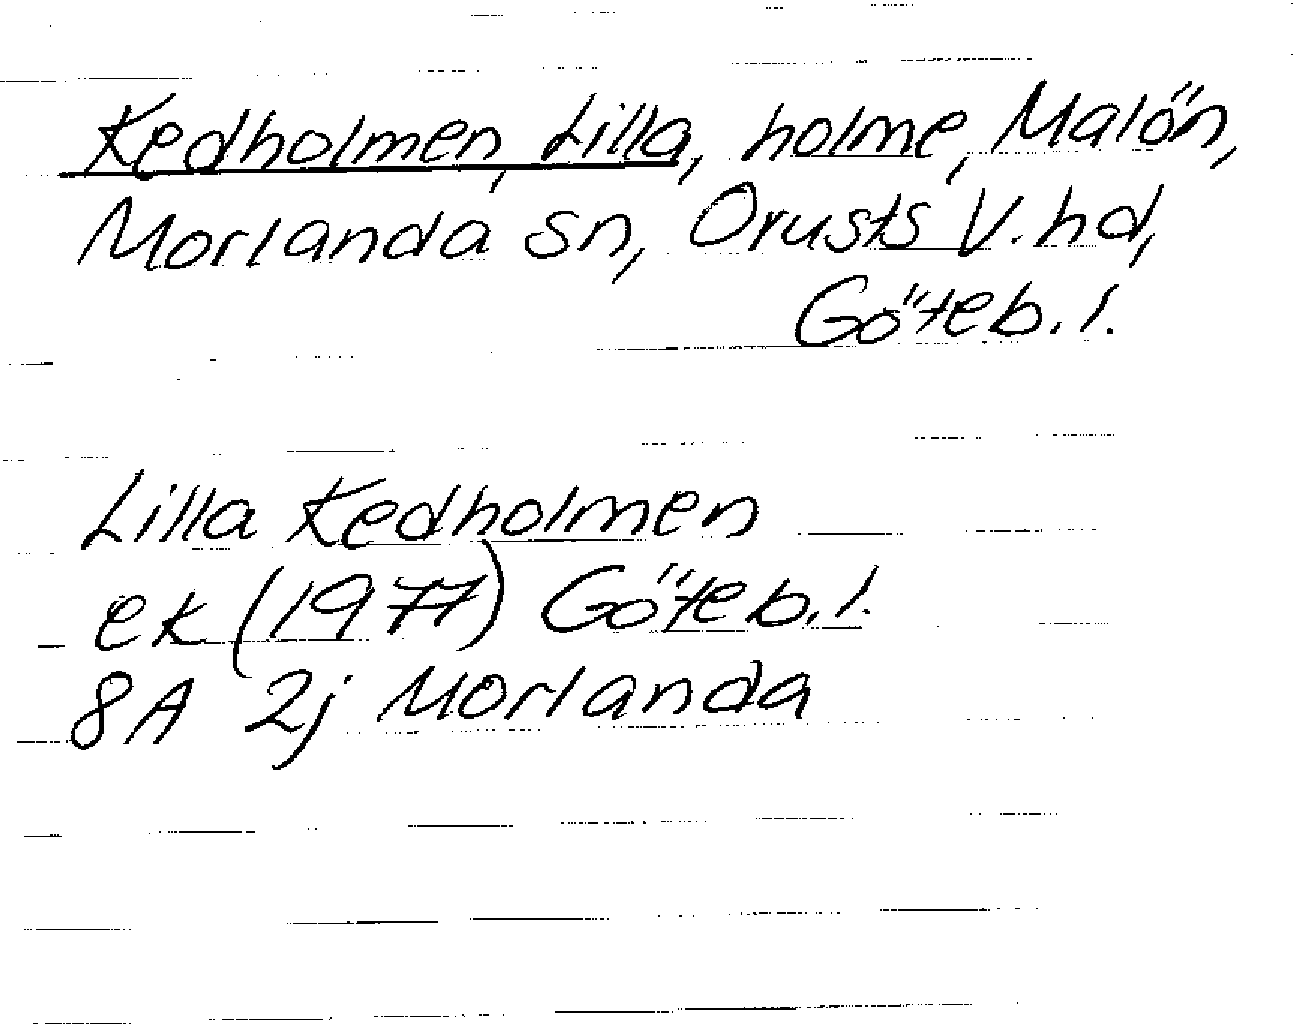 Kedholmen, Lilla, holme, Malön,
Morlanda sn, Orusts V. hd,
Göteb. l.
Lilla Kedholmen
ek (1977) Göteb. l.
8A 2j Morlanda